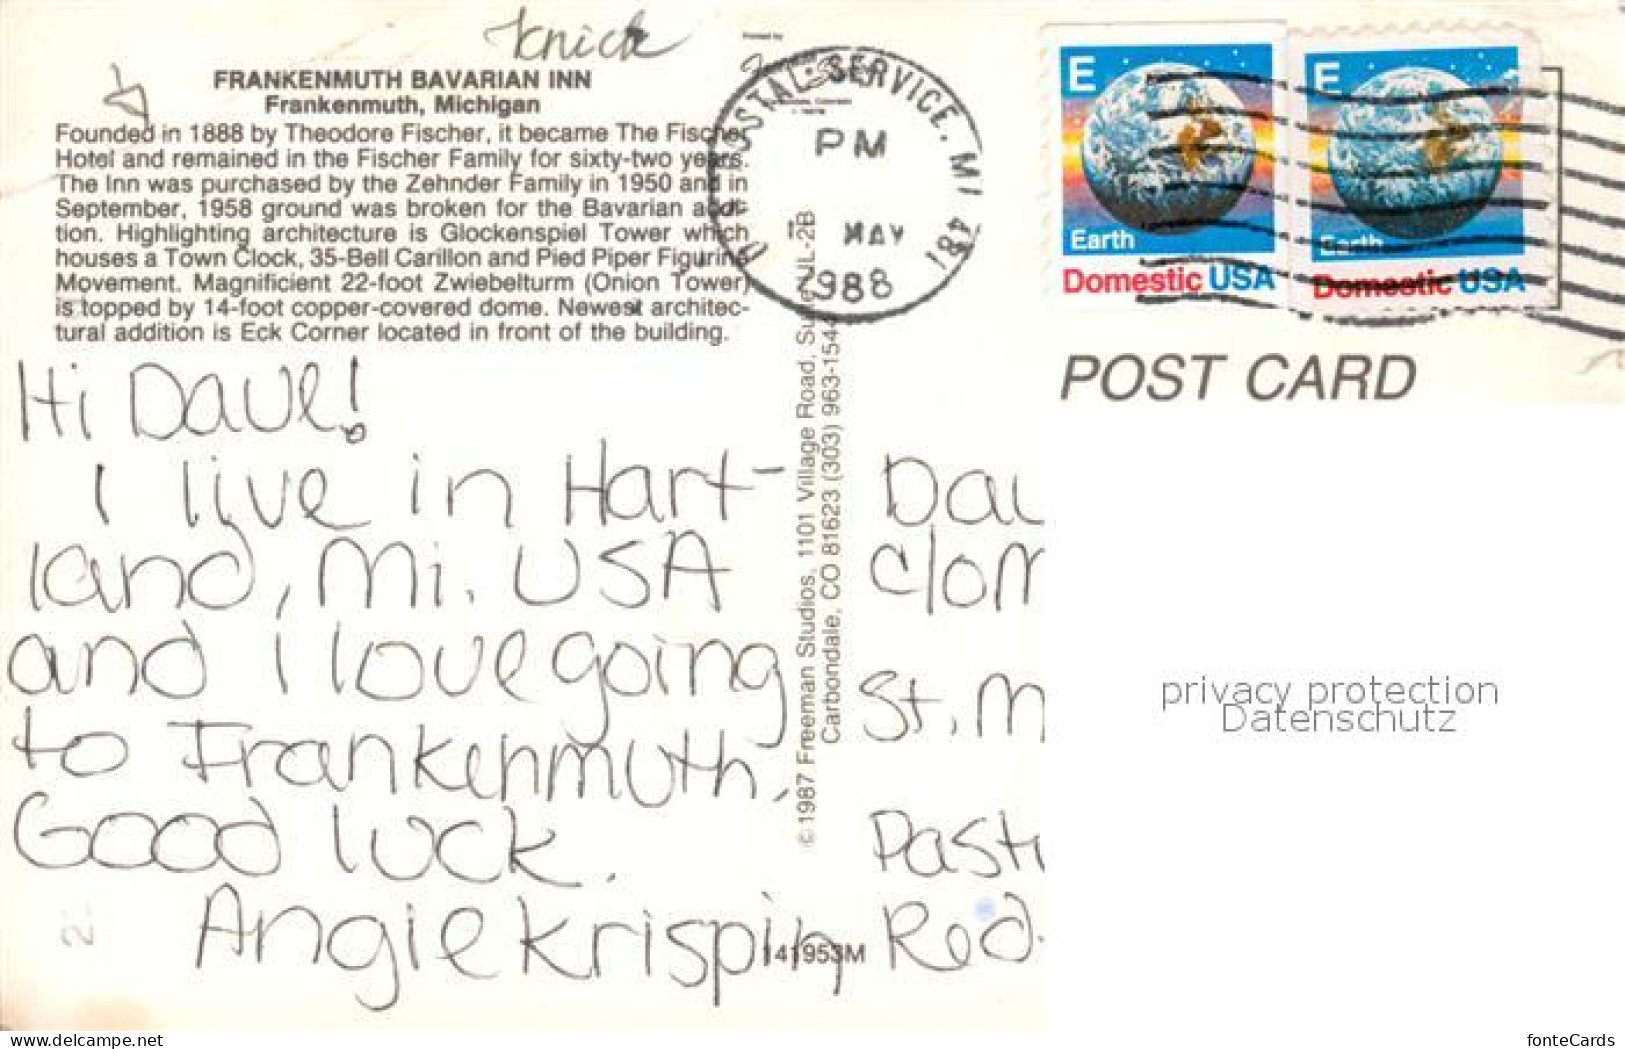 Knick
FRANKENMUTH BAVARIAN INN
Frankenmuth, Michigan
Founded in 1888 by Theodore Fischer, it became The Fischer
Hotel and remained in the Fischer Family for sixty-two years.
The Inn was purchased by the Zehnder Family in 1950 and in
September, 1958 ground was broken for the Bavarian addi-
tion. Highlighting architecture is Glockenspiel Tower which
houses a Town Clock, 35-Bell Carillon and Pied Piper Figurine
Movement. Magnificient 22-foot Zwiebelturm (Onion Tower)
is topped by 14-foot copper-covered dome. Newest architec-
tural addition is Eck Corner located in front of the building.
Hi Dave!
I live in Hart-
land, Mi. USA
and I love going
to Frankenmuth,
Good luck.
Angie Krispin
Printed by
POSTAL SERVICE, MI 481
PM
MAY
1988
© 1987 Freeman Studios, 1101 Village Road, Suite UL-2B
Carbondale, CO 81623 (303) 963-1544
141953M
E
Earth
Domestic USA
E
Earth
Domestic USA
POST CARD
Dav
c/o
St. M
Past
Red
privacy protection
Datenschutz
https://www.ansichtskarten-center.de
fonteCards